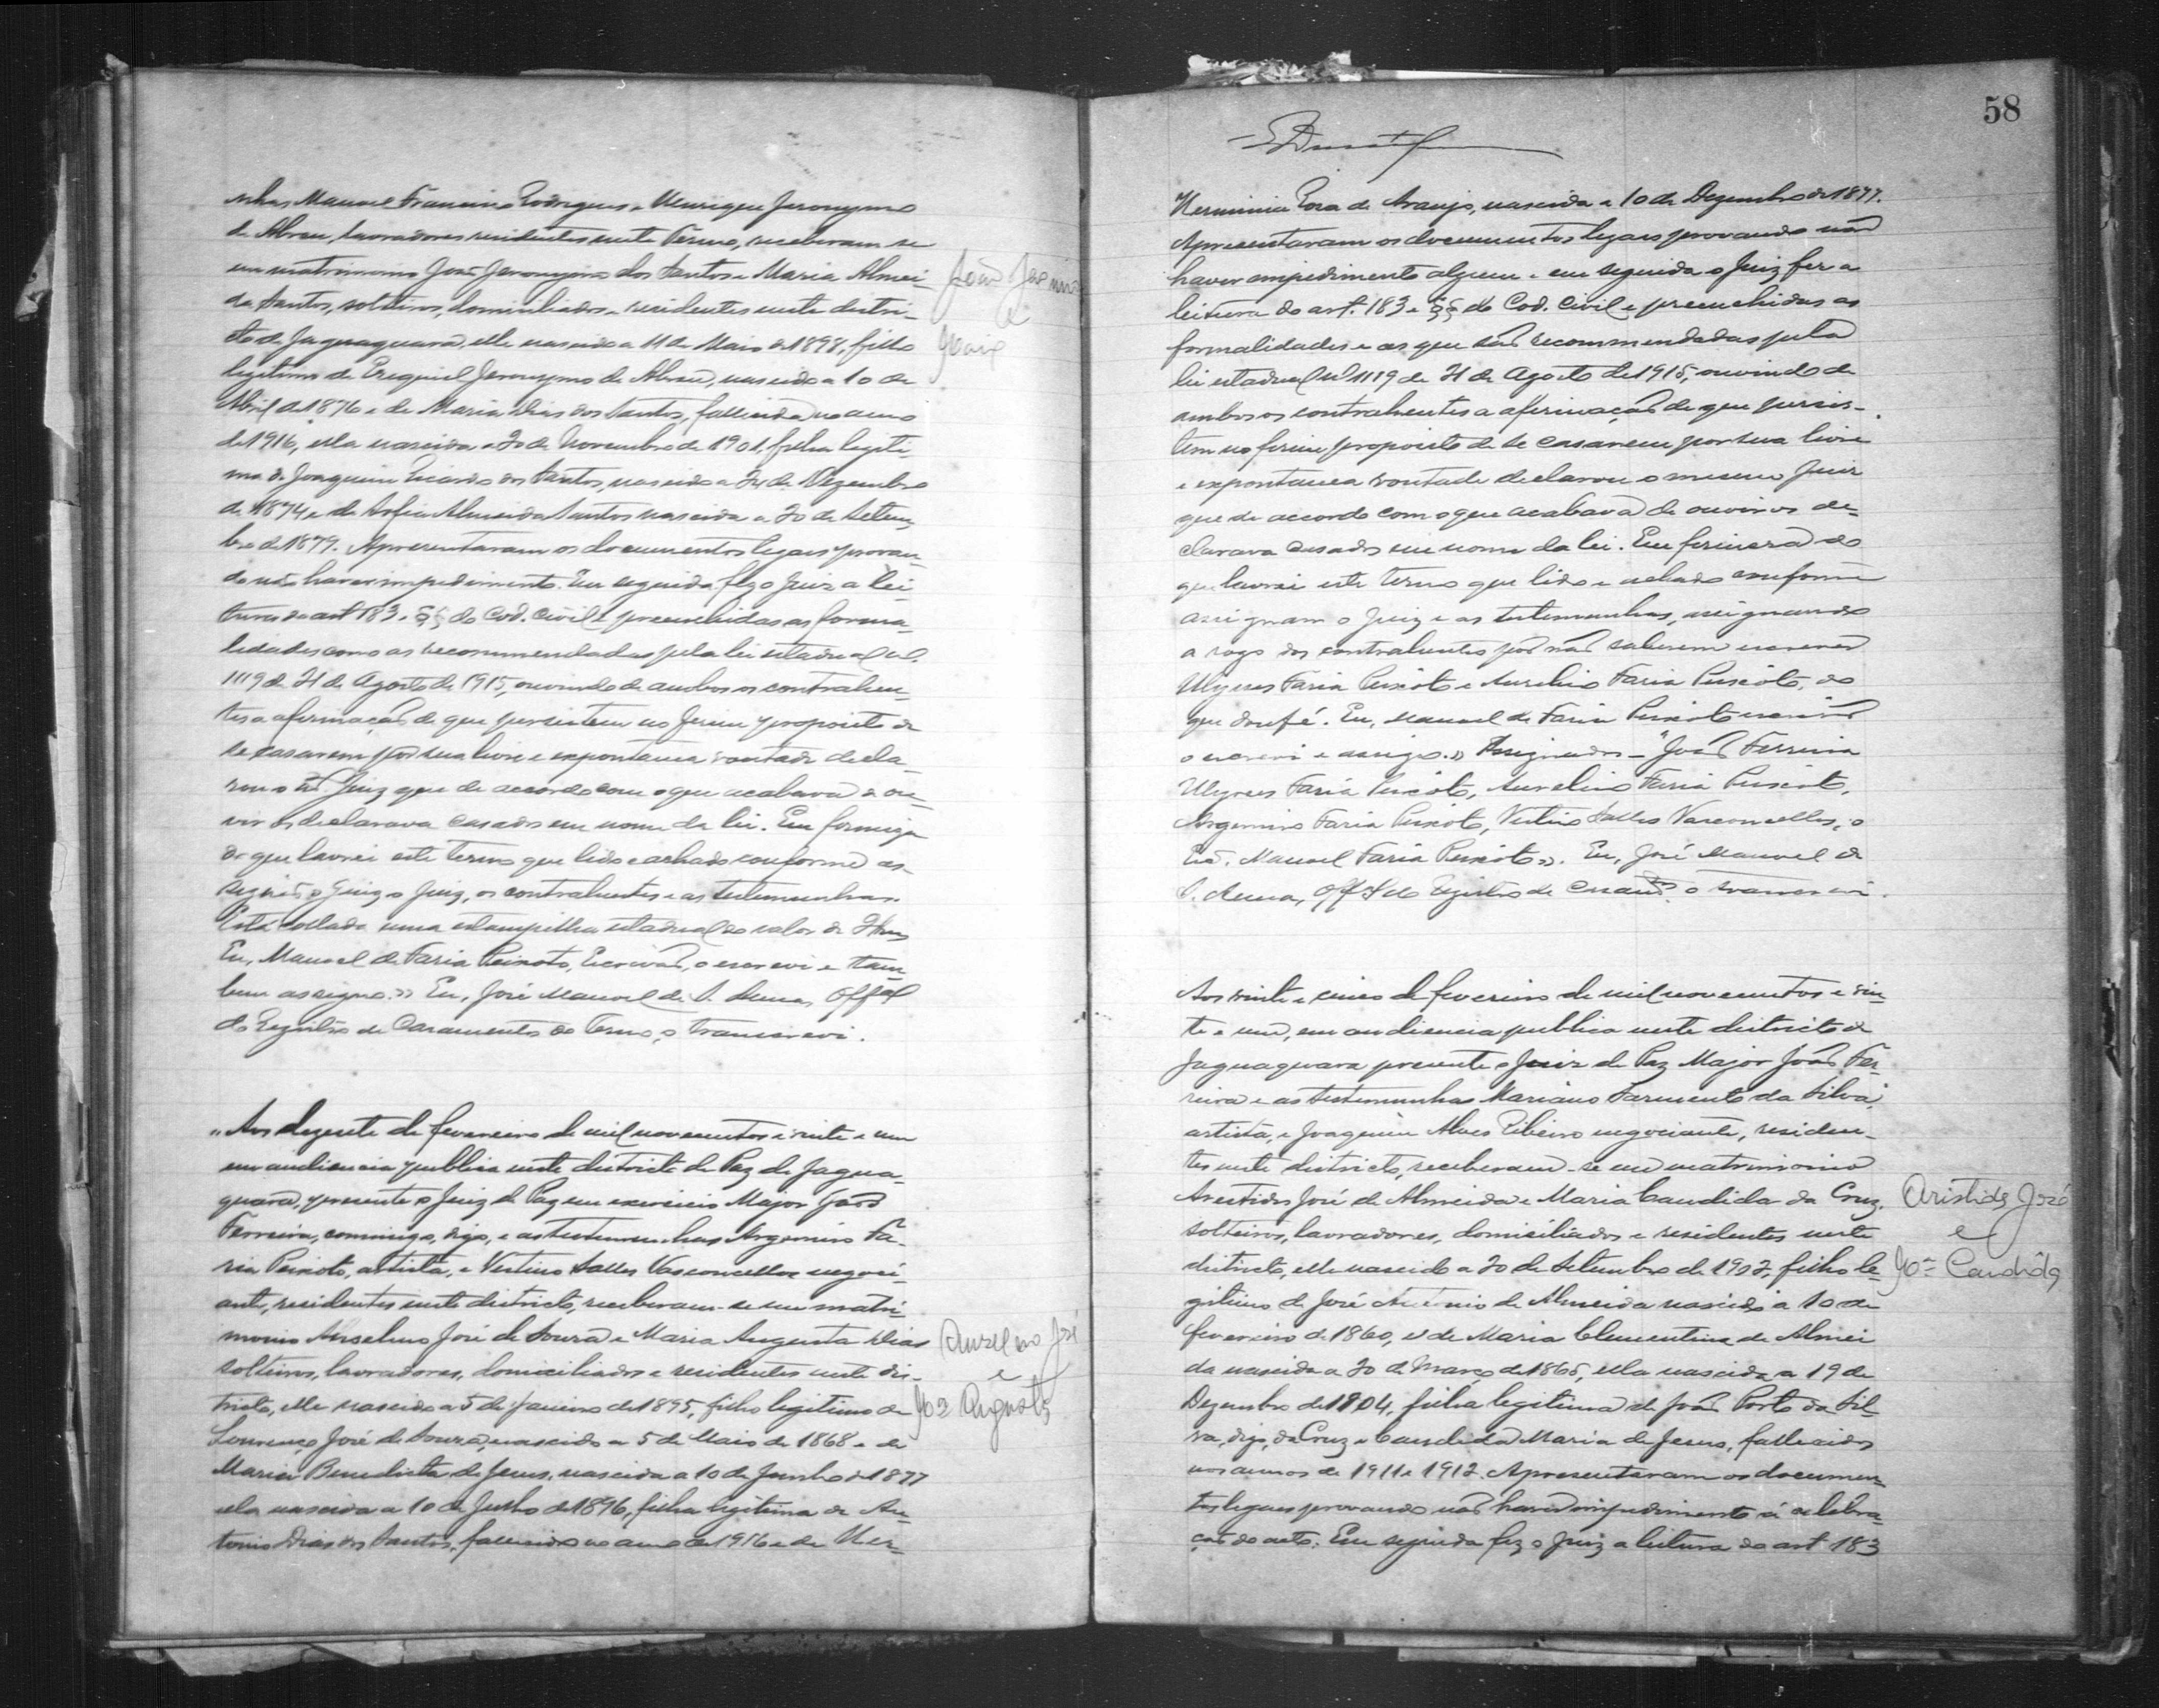 nhas Manoel Francisco Rodrigues e Henrique Jeronymo
de Abreu, lavradores residentes neste Termo, receberam se
em matrimonio João Jeronymo dos Santos e Maria Almei-
da Santos, solteiros, domiciliados e residentes neste distri-
cto de Jaguaquara, elle nascido a 11 de Maio de 1898, filho
legitimo de Ezequiel Jeronymo de Abreu, nascido a 10 de
Abril de 1876 e de Maria Dias dos Santos, fallecida no anno
de 1916, ella nascida a 20 de Novembro de 1901, filha legiti
ma de Joaquim Ricardo dos Santos, nascido a 24 de Dezembro
de 1874 e de Sofia Almeida Santos nascida a 20 de Setem-
bro de 1879. Apresentaram os documentos legaes provan-
do não haver impedimento. Em seguida fez o Juiz a lei-
tura do art 183 e §§ do Cod. Civil e preenchidas as forma-
lidades como as recommendadas pela lei estadual nº
1119 de 21 de Agosto de 1915, ouvindo de ambos os contrahen-
tes a afirmação de que persistem no firme proposito de
se casarem por sua livre e expontanea vontade decla-
rou o Juiz que de accordo com o que acabava de ou-
vir os declarava casados em nome da lei. Em firmeza
do que lavrei este termo que lido e achado conforme as-
signão o Juiz, os contrahentes e as testemunhas.
Está collada uma estampilha estadual do valor de
Eu, Manoel de Faria Peixoto, Escrivão, o escrevi e tam-
bem assigno." Eu, José Manoel de S. Anna, Offal
do Registro de Casamentos do Termo, o transcrevi.
João Jeronimo
e
Maria
"Aos dezesete de fevereiro de mil novecentos e vinte e um
em audiencia publica neste districto de Paz de Jagua-
quara, presente o Juiz de Paz em exercicio Major João
Ferreira, commigo, digo, e as testemunhas Argemiro Fa-
ria Peixoto, artista, e Vestino Salles Vasconcellos negoci-
ante, residentes neste districto, receberam-se em matri-
monio Anselmo José de Souza e Maria Augusta Dias
solteiros, lavradores, domiciliados e residentes neste dis-
tricto, elle nascido a 5 de Janeiro de 1895, filho legitimo de
Lourenço José de Souza, nascido a 5 de Maio de 1868 e de
Maria Benedicta de Jesus, nascida a 10 de Junho de 1877
ela nascida a 10 de Julho de 1896, filha legitima de An-
tonio Dias dos Santos, fallecido no anno de 1916 e de Her-
José
e
Mª Augusta
58
Herminia Rosa de Araujo, nascida a 10 de Dezembro de 1877.
Apresentaram os documentos legaes provando não
haver empedimento algum e em seguida o Juiz fez a
leitura do art. 183 e §§ do Cod. Civil e preenchidas as
formalidades e as que são recommendadas pela
lei estadual nº 1119 de 21 de Agosto de 1915, ouvindo de
ambos os contrahentes a afirmação de que persis-
tem no firme proposito de se casarem por sua livre
e expontanea vontade declarou o mesmo Juiz
que de accordo com o que acabava de ouvir os de-
clarava casados em nome da lei. Em firmeza do
que lavrei este termo que lido e achado conforme
assignam o Juiz e as testemunhas, assignando
a rogo dos contrahentes por não saberem escrever
Ulysses Faria Peixoto e Aurelino Faria Peixoto, do
que dou fé. Eu, Manoel de Faria Peixoto escrivão
o escrevi e assigno." Assignados - "João Ferreira
Ulysses Faria Peixoto, Aurelino Faria Peixoto,
Argemiro Faria Peixoto, Vestino Salles Vasconcellos, o
Esc. Manoel Faria Peixoto". Eu, José Manoel de
S. Anna, Offal do Registro de Casamtos o transcrevi.
Aos vinte e cinco de fevereiro de mil novecentos e vin-
te e um, em audiencia publica neste districto de
Jaguaquara presente o Juiz de Paz Major João Fer-
reira e as testemunhas Mariano Sarmento da Silva,
artista, e Joaquim Alves Ribeiro negociante, residen-
tes neste districto, receberam-se em matrimonio
Arestides José de Almeida e Maria Candida da Cruz,
solteiros, lavradores, domiciliados e residentes neste
districto, elle nascido a 20 de Setembro de 1902, filho le-
gitimo de José Antonio de Almeida nascido a 10 de
fevereiro de 1860, e de Maria Clementina de Almei
da nascida a 20 de Março de 1865, ella nascida a 19 de
Dezembro de 1904, filha legitima de João Porto da Sil-
va, digo, da Cruz e Candida Maria de Jesus, fallecidos
nos annos de 1911 e 1912. Apresentaram os documen-
tos legaes provando não haver impedimento á celebra-
ção do acto. Em seguida fez o Juiz a leitura do art 183
Aristides José
e
Mª Candida